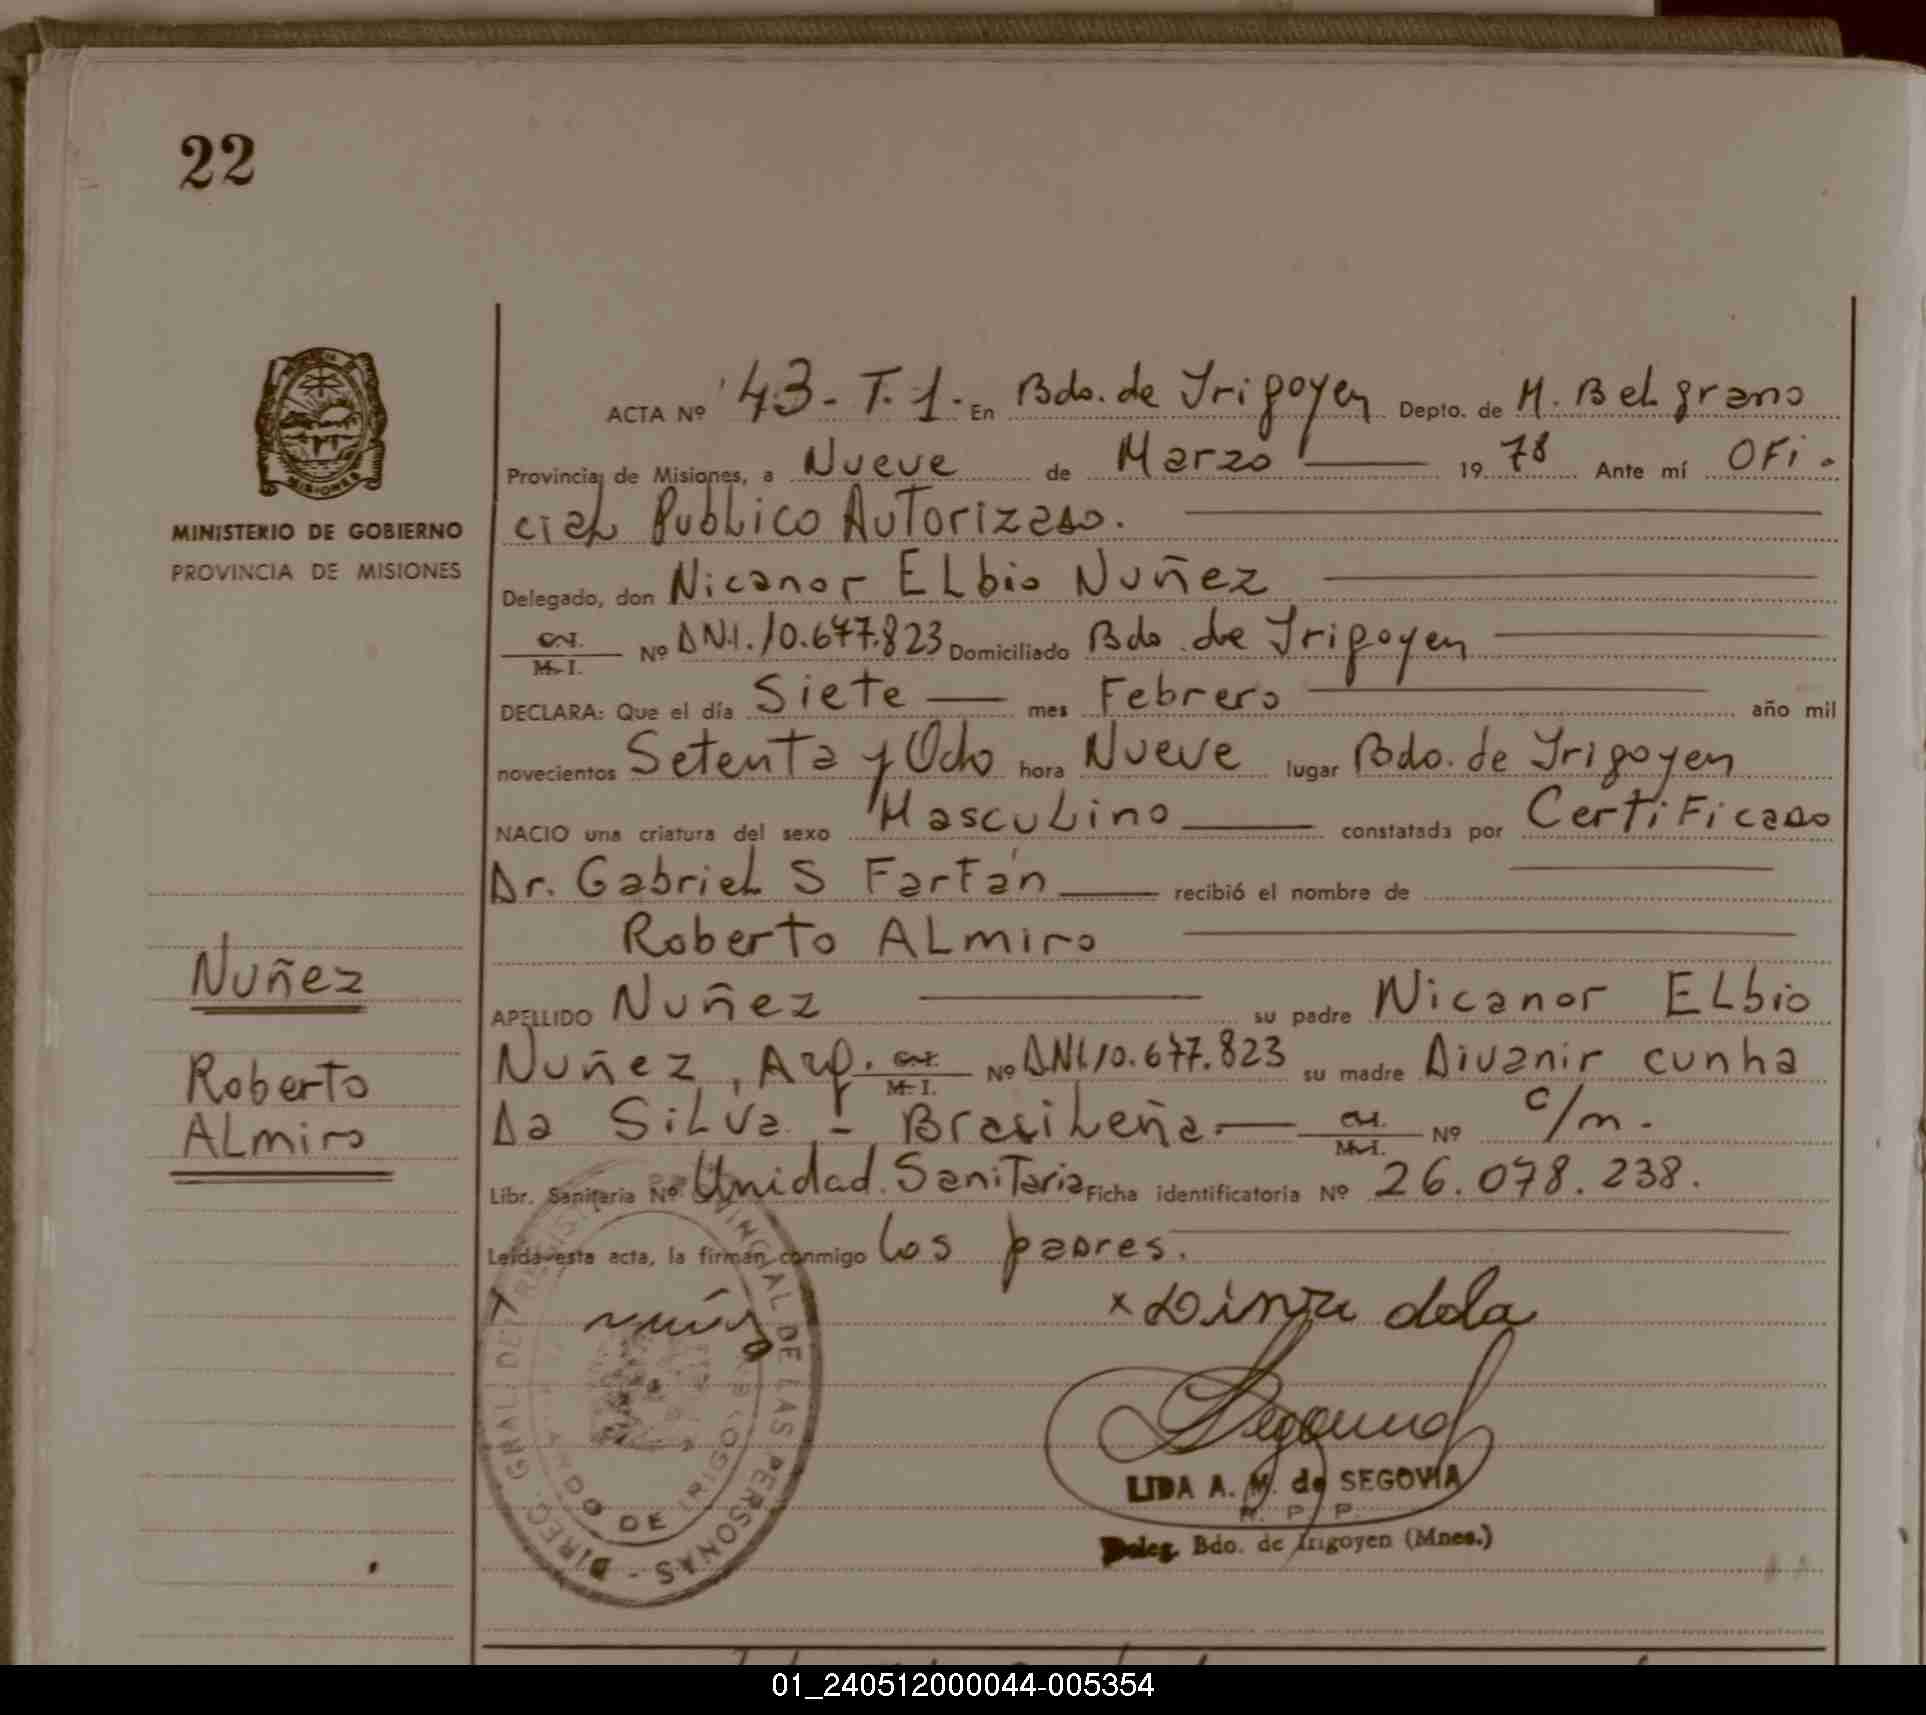 22
MISIONES
MINISTERIO DE GOBIERNO
PROVINCIA DE MISIONES
ACTA Nº 43 - T. 1. En Bdo. de Irigoyen Depto. de M. Belgrano
Provincia de Misiones, a Nueve de Marzo 1978 Ante mí OFi-
cial Publico Autorizado.
Delegado, don Nicanor Elbio Nuñez
C.I. / M. I. Nº DNI. 10.677.823 Domiciliado Bdo de Irigoyen
DECLARA: Que el día Siete mes Febrero año mil
novecientos Setenta y Ocho hora Nueve lugar Bdo. de Irigoyen
NACIO una criatura del sexo Masculino constatada por Certificado
Dr. Gabriel S Fartán recibió el nombre de
Roberto Almiro
APELLIDO Nuñez su padre Nicanor Elbio
Nuñez, Arg. C.I. / M. I. Nº DNI. 10.677.823 su madre Divanir cunha
Da Silva - Brasileña. C.I. / M. I. Nº c/m.
Libr. Sanitaria Nº Unidad Sanitaria Ficha identificatoria Nº 26.078.238.
Leída esta acta, la firman conmigo los padres.
Nuñez
Roberto
Almiro
DIREC. GRAL. DEL REGISTRO PROVINCIAL DE LAS PERSONAS -
BDO DE IRIGOYEN
LIDA A. M. de SEGOVIA
R. P. P.
Deleg. Bdo. de Irigoyen (Mnes.)
01_240512000044-005354